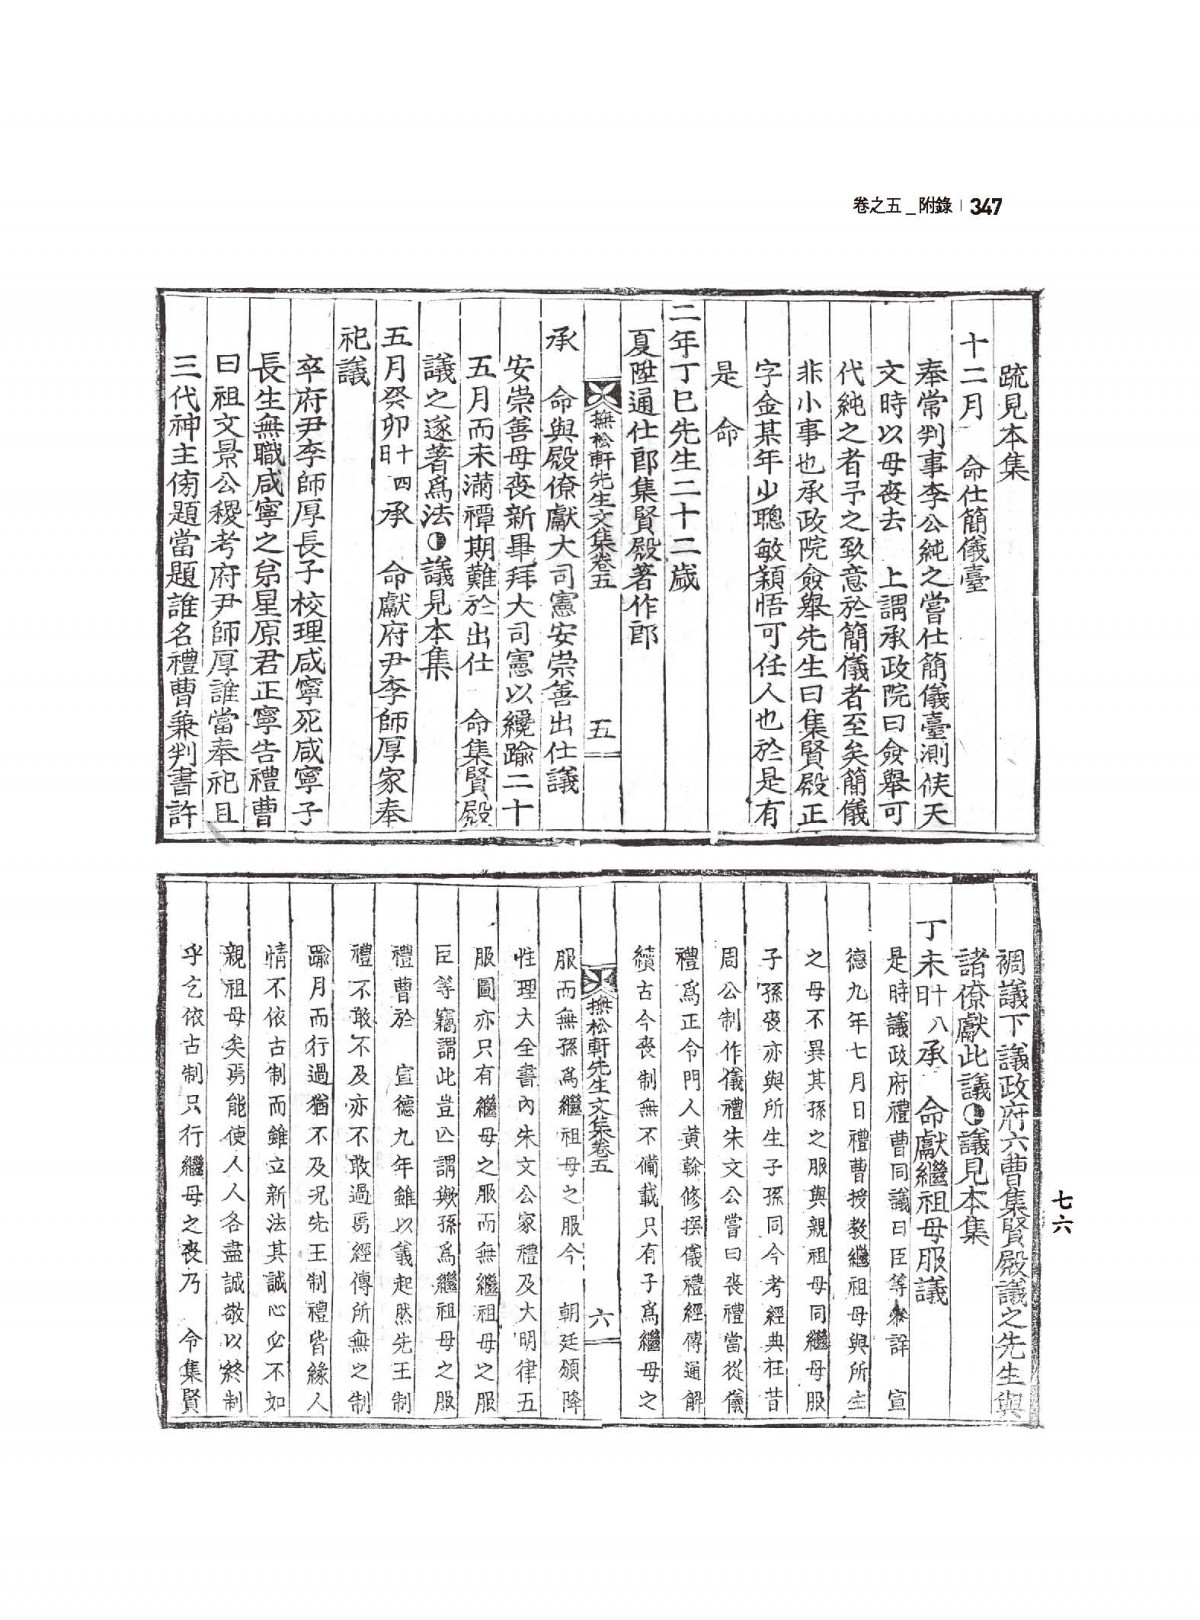 卷之五_附錄 | 347
疏見本集
十二月 命仕簡儀臺
奉常判事李公純之嘗仕簡儀臺測候天
文時以母喪去 上謂承政院曰僉舉可
代純之者予之致意於簡儀者至矣簡儀
非小事也承政院僉舉先生曰集賢殿正
字金某年少聰敏穎悟可任人也於是有
是 命
二年丁巳先生二十二歲
夏陞通仕郎集賢殿著作郎
撫松軒先生文集卷五 五
承 命與殿僚獻大司憲安崇善出仕議
安崇善母喪新畢拜大司憲以纔踰二十
五月而未滿禫期難於出仕 命集賢殿
議之遂著爲法◐議見本集
五月癸卯十四日承 命獻府尹李師厚家奉
祀議
卒府尹李師厚長子校理咸寧死咸寧子
長生無職咸寧之弟星原君正寧告禮曹
曰祖文景公稷考府尹師厚誰當奉祀且
三代神主傍題當題誰名禮曹兼判書許
稠議下議政府六曹集賢殿議之先生與
諸僚獻此議◐議見本集
丁未十八日承 命獻繼祖母服議
是時議政府禮曹同議曰臣等叅詳 宣
德九年七月日禮曹授敎繼祖母與所生
之母不異其孫之服與親祖母同繼母服
子孫喪亦與所生子孫同今考經典在昔
周公制作儀禮朱文公嘗曰喪禮當從儀
禮爲正令門人黃榦修撰儀禮經傳通解
續古今喪制無不備載只有子爲繼母之
撫松軒先生文集卷五 六
服而無孫爲繼祖母之服今 朝廷頒降
性理大全書內朱文公家禮及大明律五
服圖亦只有繼母之服而無繼祖母之服
臣等竊謂此豈亾謂歟孫爲繼祖母之服
禮曹於 宣德九年雖以義起然先王制
禮不敢不及亦不敢過焉經傳所無之制
踰月而行過猶不及況先王制禮皆緣人
情不依古制而雖立新法其誠心必不如
親祖母矣焉能使人人各盡誠敬以終制
乎乞依古制只行繼母之喪乃 令集賢
七六